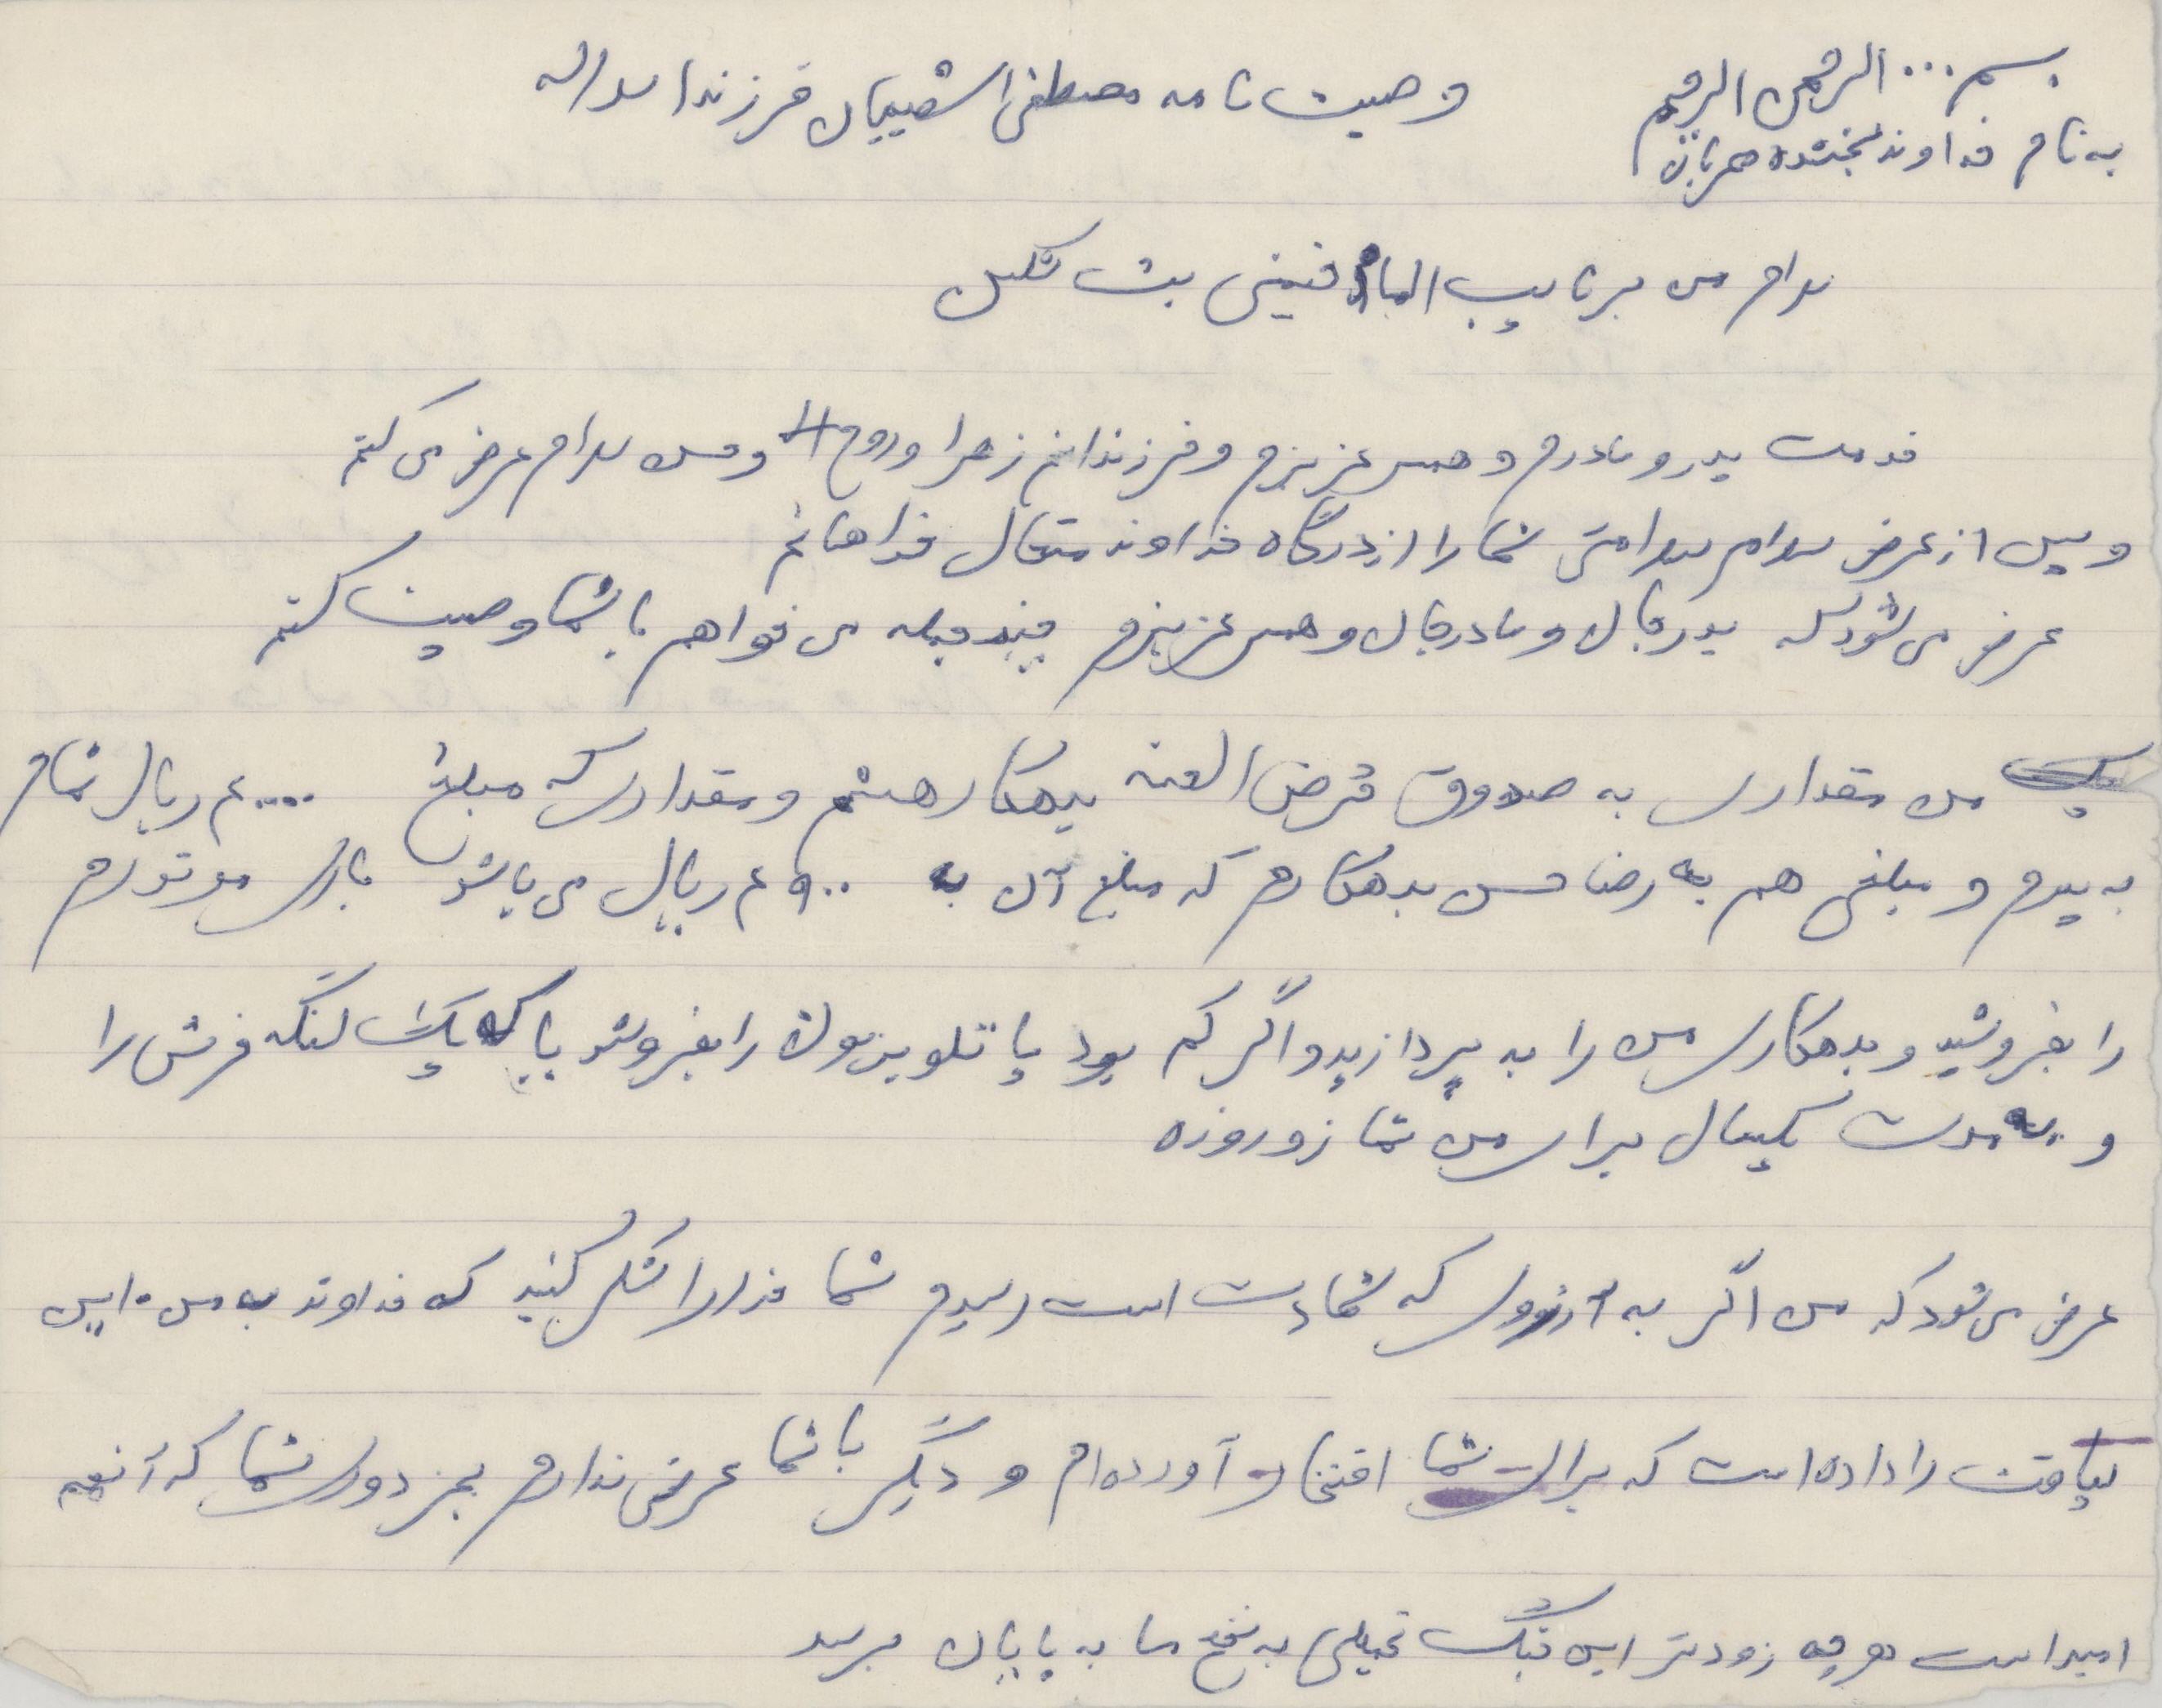 بسم... الرحمن الرحیم
به نام خداوند بخشنده مهربان
وصیت نامه مصطفی اشعییان فرزند اسداله
سلام من بر نایب الامام خمینی بت شکن
خدمت پدر و مادرم و همسر عزیزم و فرزندانم زهرا و روح ا... و حسن سلام عرض می کنم
و پس از عرض سلام سلامتی شما را از درگاه خداوند متعال خواهانم
عرض می شود که پدر جان و مادر جان و همسر عزیزم چند جمله می خواهم با شما وصیت کنم
من مقداری به صندوق قرض الحسنه بدهکار هستم و مقداری که مبلغ ۴۰۰۰۰ ریال تمام
به پدرم و مبلغی هم به رضا حسن بدهکارم که مبلغ آن به ۴۹۰۰ ریال می باشد باری موتورم
را بفروشید و بدهکاری من را به پردازید و اگر کم بود یا تلویزیون را بفروشد یا که یک لنگه فرش را
و به مدت یکسال برای من نماز و روزه
عرض می شود که من اگر به آرزوی که شهادت است رسیدم شما خدا را شکر کنید که خداوند به من این
لیاقت را داده است که برای شما افتخار آورده ام و دیگر با شما عرضی ندارم بجز دوری شما که آنهم
امید است هر چه زودتر این جنگ تحمیلی به نفع ما به پایان برسد